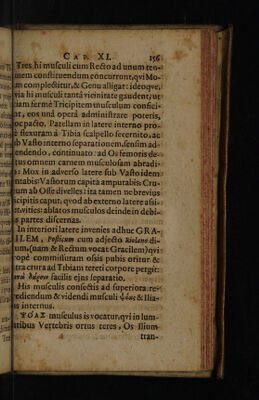 CAP. XI. 156
Tres hi musculi cum Recto ad unum ten-
inem constituendum concurrunt, qui Mo-
m complectitur, & Genu alligat: ideoque,
via hi musculi tanta vicinitate gaudent, ut
iam fermè Tricipitem musculum confici-
nt, eos unâ operâ administrare poteris,
oc pacto. Patellam in latere interno pro-
è flexuram à Tibia scalpello secernito, ac
ub Vasto interno separationem, sensim ad-
endendo, continuato: ad Os femoris de-
us omnem carnem musculosam abradi-
: Mox in adverso latere sub Vasto idem
ntabis: Vastorum capita amputabis: Cru-
um ab Osse divelles: ita tamen ne brevius
icipitis caput, quod ab externo latere assi-
t, vities: ablatos musculos deinde in debi-
s partes discernas.
In interiori latere invenies adhuc GRA-
ILEM, Posticum cum adjecto
um, (nam & Rectum vocat Gracilem) qui
ropè commissuram ossis pubis oritur &
tra crura ad Tibiam tereti corpore pergit:
facilis ejus separatio.
His musculis consectis ad superiora re-
ediendum & videndi musculi ψόας & Ilia-
us internus.
ΨΟΑΣ musculus is vocatur, qui in lum-
aribus Vertebris ortus teres, Os Ilium
tran-